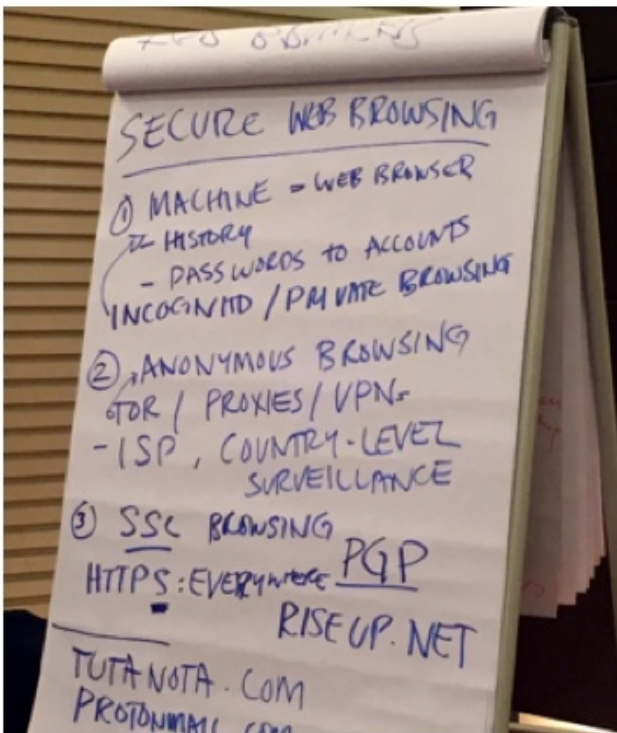 SECURE WEB BROWSING
① MACHINE = WEB BROWSER
- HISTORY
- PASSWORDS TO ACCOUNTS
INCOGNITO / PRIVATE BROWSING
② ANONYMOUS BROWSING
TOR / PROXIES / VPNs
- ISP, COUNTRY-LEVEL
SURVEILLANCE
③ SSL BROWSING
HTTPS: EVERYWHERE PGP
RISEUP.NET
TUTANOTA.COM
PROTONMAIL.COM